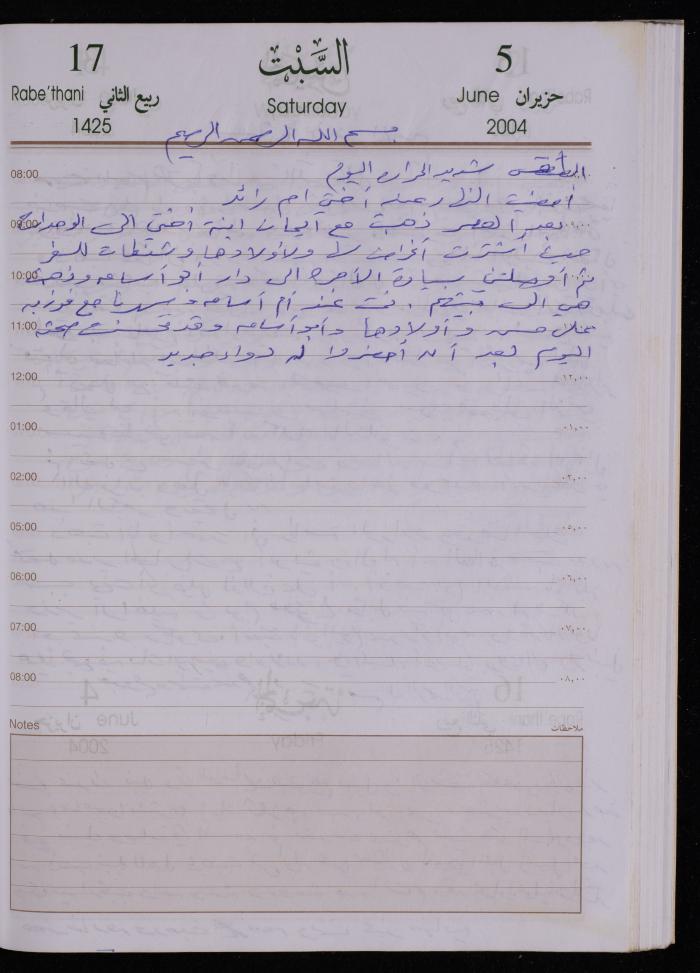 17 السَّبْت 5
Rabe'thani ربيع الثاني Saturday June حزيران
1425 2004
بسم الله الرحمن الرحيم
08:00 الطقس شديد الحرارة اليوم
أمضيت النهار عند أختي ام رائد
09:00 بعد العصر ذهبت مع ايمان ابنة أختي الى الوحدات
حيث أشترت أغراض لها ولأولادها وشنطات للسفر
10:00 ثم أوصلتني سيارة الأجرة الى دار أبو أسامة وذهبت
هي الى بيتهم . نمت عند أم أسامة وسهرنا مع فوزية
11:00 حسن وأولادها وأبو أسامة وقد تحسنت صحته
اليوم بعد أن أحضروا له دواء جديد
12:00 ١٢,٠٠
01:00 ٠١,٠٠
02:00 ٠٢,٠٠
05:00 ٠٥,٠٠
06:00 ٠٦,٠٠
07:00 ٠٧,٠٠
08:00 ٠٨,٠٠
Notes ملاحظات